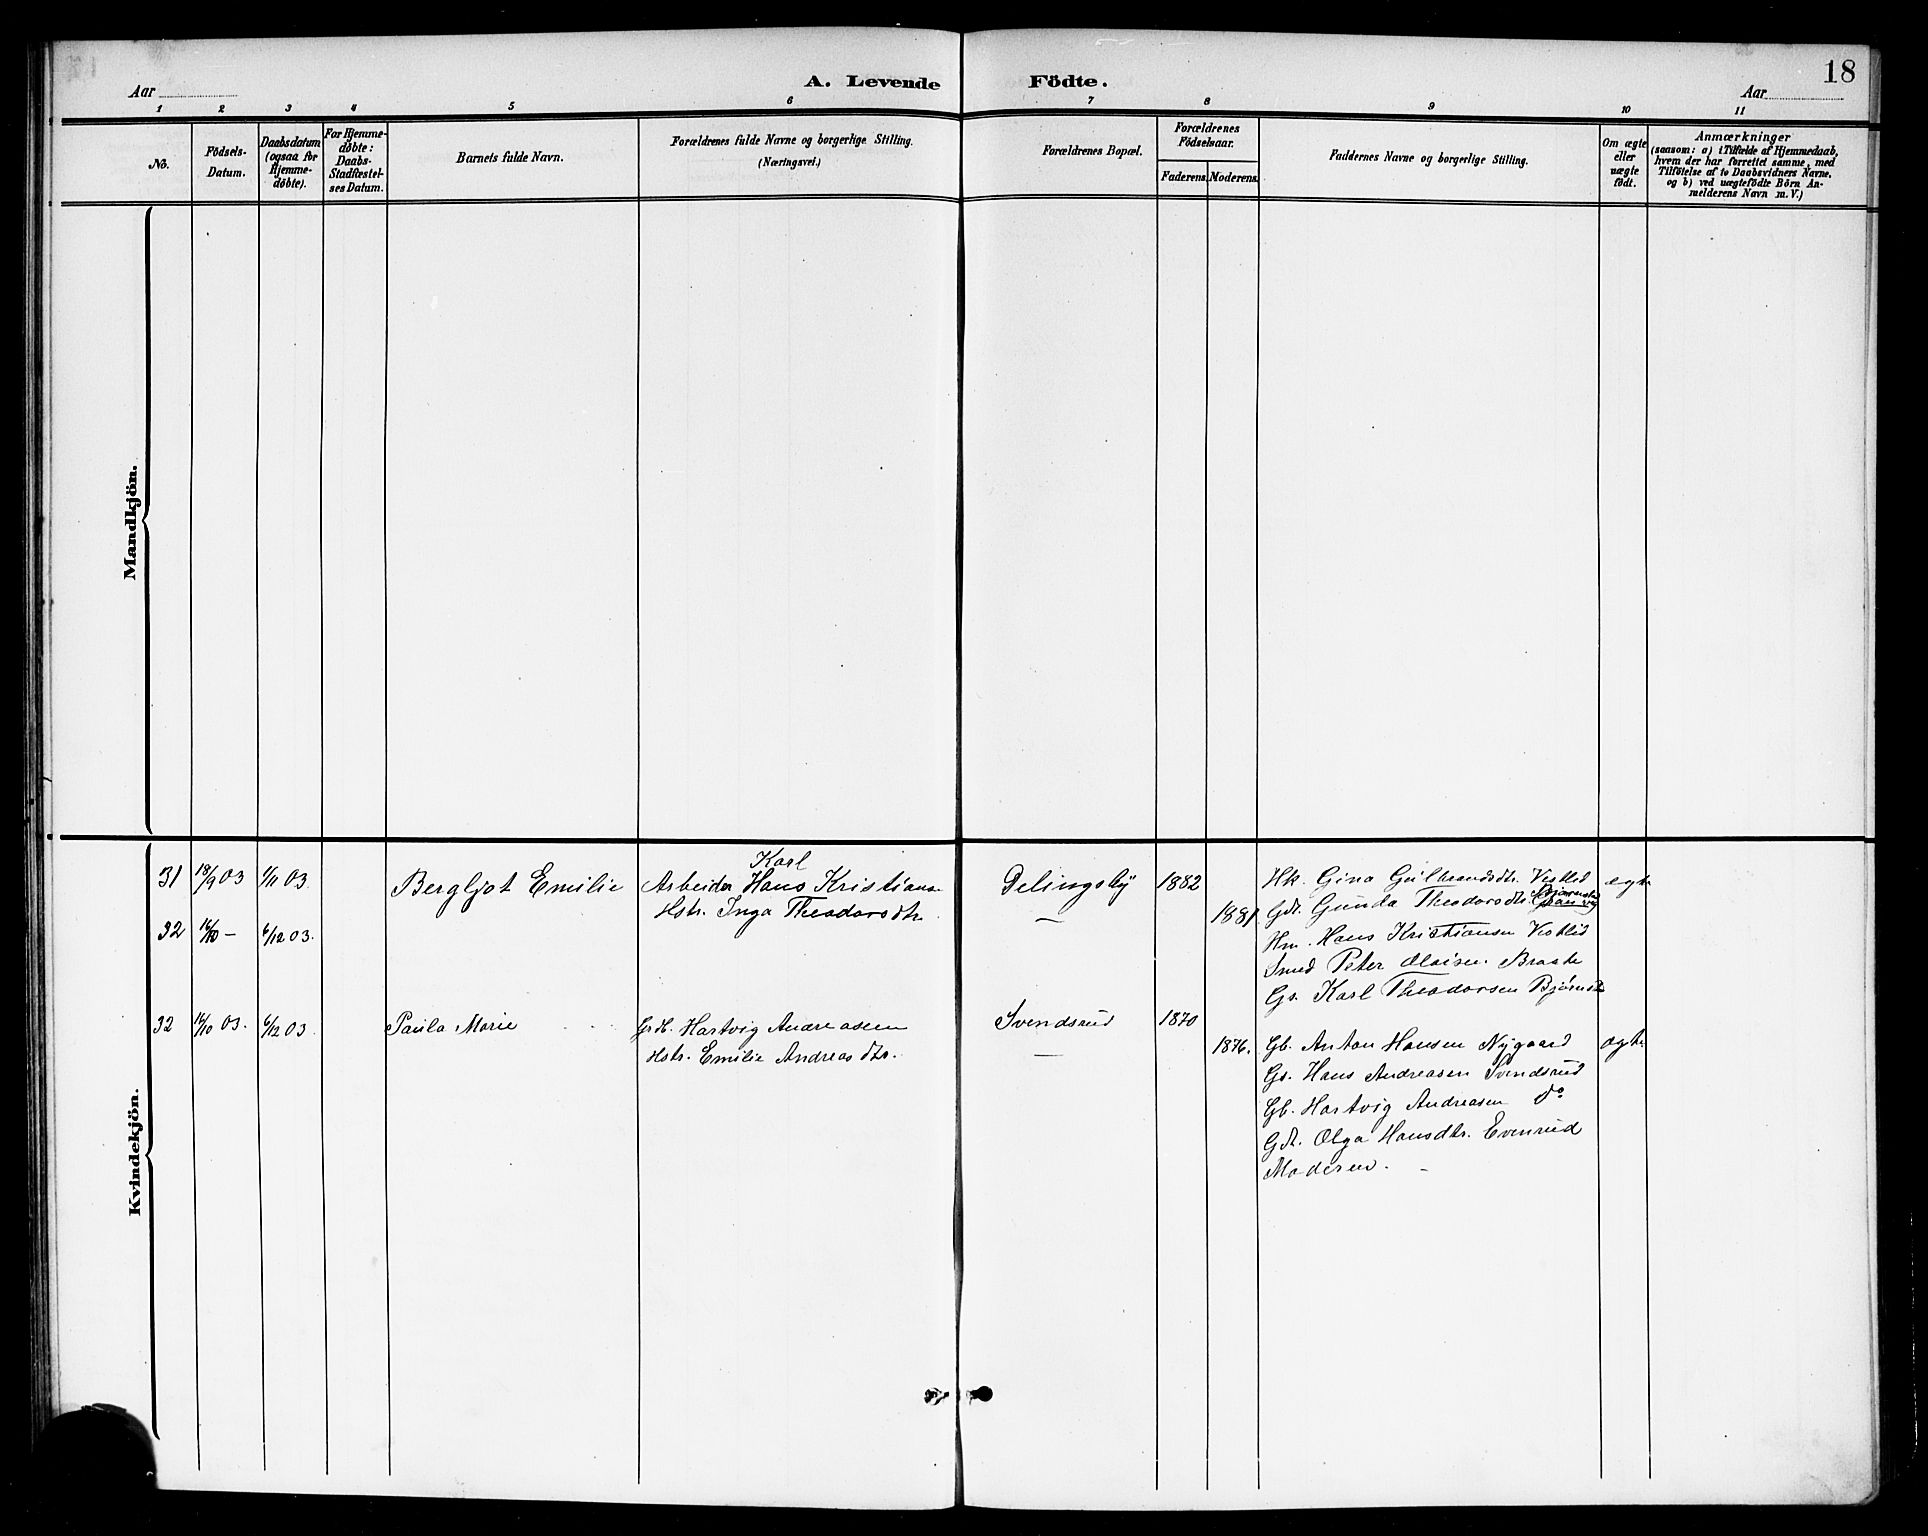 18
Aar
A. Levende Födte.
Aar
1 2 3 4 5 6 7 8 9 10 11
No.
Födsels-
Datum.
Daabsdatum
(ogsaa for
Hjemme-
døbte).
For Hjemme-
døbte:
Daabs-
Stadfæstel-
ses Datum.
Barnets fulde Navn.
Forældrenes fulde Navne og borgerlige Stilling.
(Næringsvei.)
Forældrenes Bopæl.
Forældrenes
Fødselsaar.
Faderens. Moderens.
Faddernes Navne og borgerlige Stilling.
Om ægte
eller
uægte
født.
Anmærkninger
(saasom: a) i Tilfælde af Hjemmedaab,
hvem der har forrettet samme, med
Tilföielse af to Daabsvidners Navne,
og b) ved uægtefödte Börn An-
melderens Navn m. V.)
Mandkjön.
Kvindekjön.
Karl
31 18/9 03 1/11 03. Bergljot Emilie Arbeider Hans Kristiansen Delingsby 1882 Hk. Gina Gulbrandsdtr. Vestlid ægte
Hstr. Inga Theodorsdtr. — 1881 Gdt. Gunda Theodorsdtr.
32 16/10 — 6/12 03. Hm. Hans Kristiansen Vestlid
Smed Peter Olaisen Braate
Gs. Karl Theodorsen Bjørnst
32 16/10 03. 6/12 03. Paula Marie Grdb. Hartvig Andreasen Svendsrud 1870
Hstr. Emilie Andreasdtr. — 1876. Gb. Anton Hansen Nygaard ægte
Gs. Hans Andreasen Svendsrud
Gb. Hartvig Andreasen do
Gdt. Olga Hansdtr. Evenrud
Moderen.